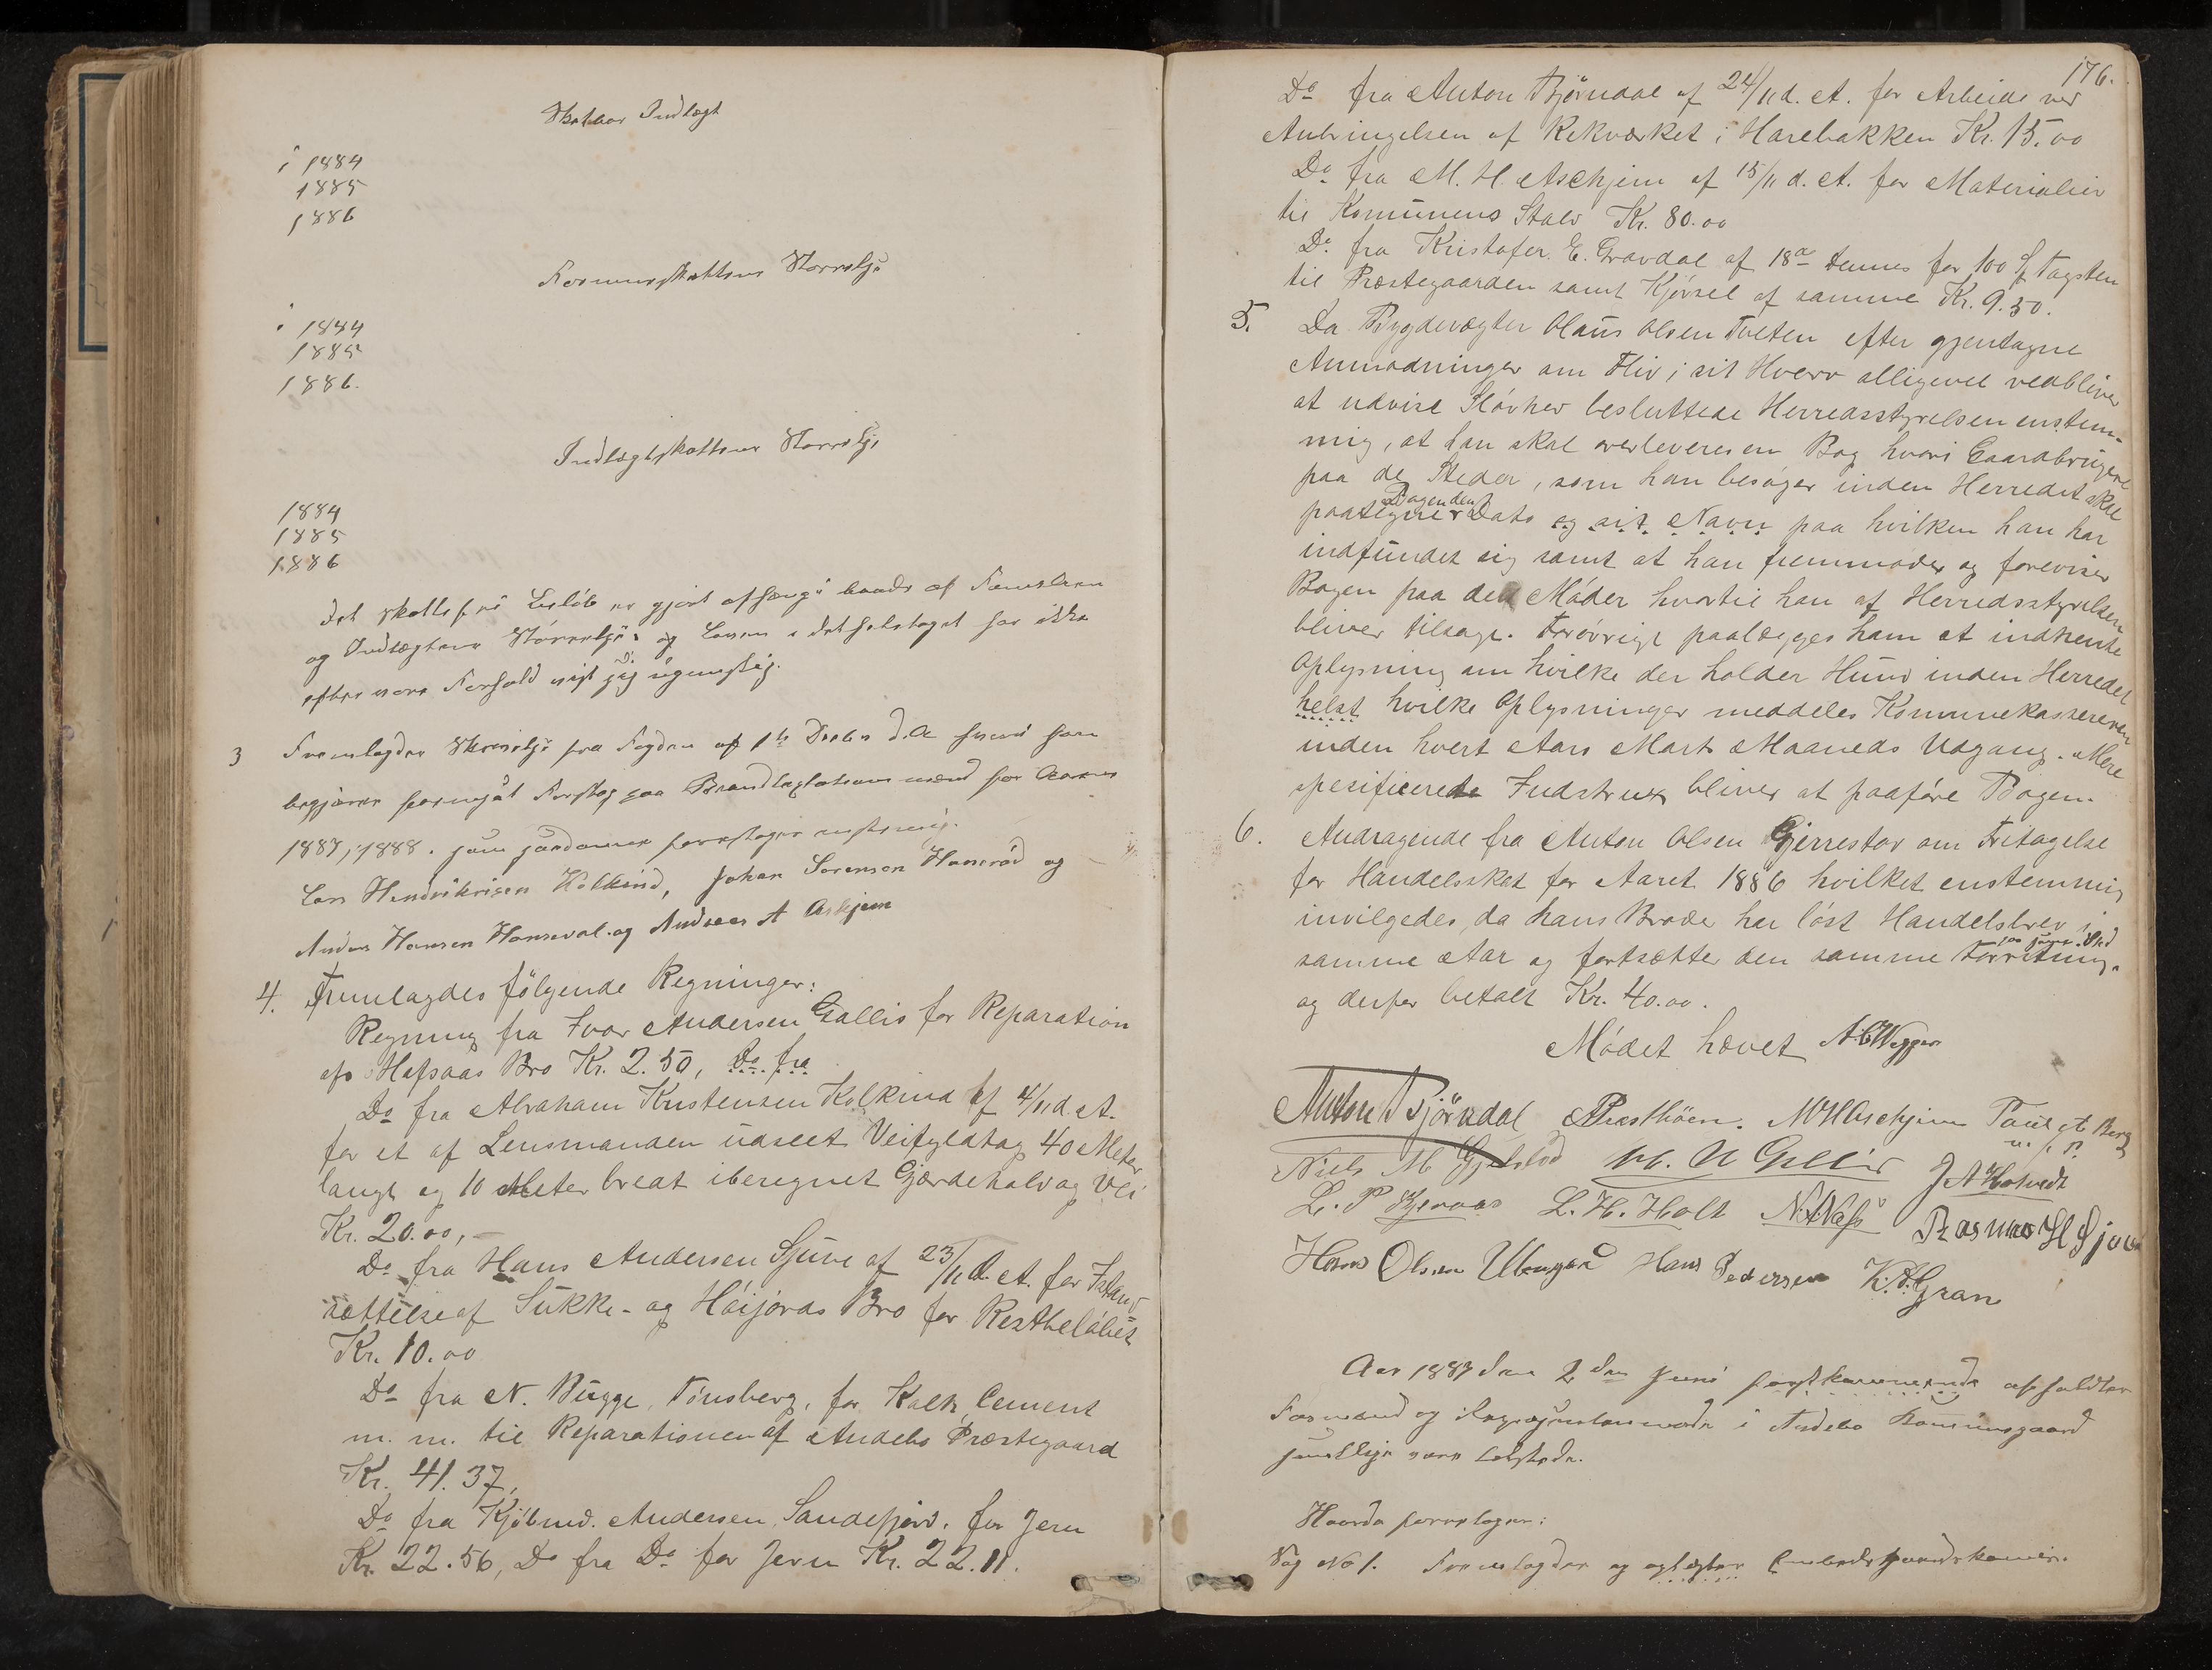 Skatbar Indtægt
i 1884
1885
1886
Formuesskattens Størrelse
i 1884
1885
1886.
Indtægtsskattens Størrelse
1884
1885
1886
Det skattefrie Beløb er gjort afhængig baade af Familiens
og Indtægtens Størrelse og Loven i det hele taget har ikke
efter vore Forhold vist sig ugunstig.
3 Fremlagdes Skrivelse fra Fogden af 1ste Decbr d. A. hvori han
begjærer fornyet Forslag paa Brandtaxtationsmænd for Aarene
1887, 1888. som saadanne foreslages enstemmig.
Lars Hendriksen Kolkind, Johan Sorensen Hanerød og
Anders Hansen Honseval og Andreas A Askjem
4. Fremlagdes følgende Regninger:
Regning fra Ivar Andersen Gallis for Reparation
af Hafsaas Bro Kr. 2.50, Do fra
Do fra Abraham Kristensen Kolkind af 4/11 d. A.
for et af Lensmanden udseet Veifyldtag 40 Meter
langt og 10 Meter bredt iberegnet Gjærdehold og Vei
Kr. 20.00, -
Do fra Hans Andersen Sjue af 23/11 d. A. for Istand-
sættelse af Sukke- og Høijords Bro for Restbeløbet
Kr. 10.00
Do fra N. Bugge, Tønsberg, for Kalk, Cement
m. m. til Reparationen af Andebo Præstegaard
Kr. 41.37,
Do fra Kjøbmd. Andersen, Sandefjord, for Jern
Kr. 22.56, Do fra Do for Jern Kr. 22.11.
176.
Do fra Anton Bjørndal af 24/11 d. A. for Arbeide ved
Anbringelsen af Rekværket i Harebakken Kr. 15.00
Do fra M. H. Aschjem af 15/11 d. A. for Materialier
til Komunens Stald Kr. 80.00
Do. fra Kristofer E. Gravdal af 18de dennes for 100 St Tagsten
til Præstegaarden samt Kjørsel af samme Kr. 9.50.
5. Da Bygdevægter Olaus Olsen Tveten efter gjentagne
Anmodninger om Flid i sit Hverv alligevel vedbliver
at udvise Sløvhed besluttede Herredsstyrelsen enstem-
mig, at han skal overleveres en Bog hvori Gaardbrugere
paa de Steder, som han besøger inden Herredet skal
paategne Dagen den Dato og sit Navn paa hvilken han har
indfundet sig samt at han fremmøder og foreviser
Bogen paa de Møder hvortil han af Herredsstyrelsen
bliver tilsagt. Forøvrigt paalægges ham at indhente
Oplysning om hvilke der holder Hund inden Herredet
helst hvilke Oplysninger meddeles Kommunekassereren
inden hvert Aars Marts Maaneds Udgang. Mere
spesificerede Indstrux bliver at paaføre Bogen.
6. Andragende fra Anton Olsen Gjerrestad om Fritagelse
for Handelsskat for Aaret 1886 hvilket enstemmig
invilgedes, da hans Broder har løst Handelsbrev i
samme Aar og fortsætter den samme Forretning paa samme Sted
og derfor betalt Kr. 40.00.
Mødet hævet A C Wegger
Anton Bjørndal Præsthöen. M H Aschjem Paul A Berg
m. f. P.
Niels M Gjelstød J A Hotvedt
L. P Gjeraas L. H. Holt N. A. Næss Rasmus H Gjou
Hans Olsen Hans Pedersen K. A. Gran
Aar 1887 den 2den Juni afholdtes
Formænd og Repræsentantmøde i Andebo Kommunegaard
Hvorda foretoges:
Sag No 1. Fremlagdes og oplæstes